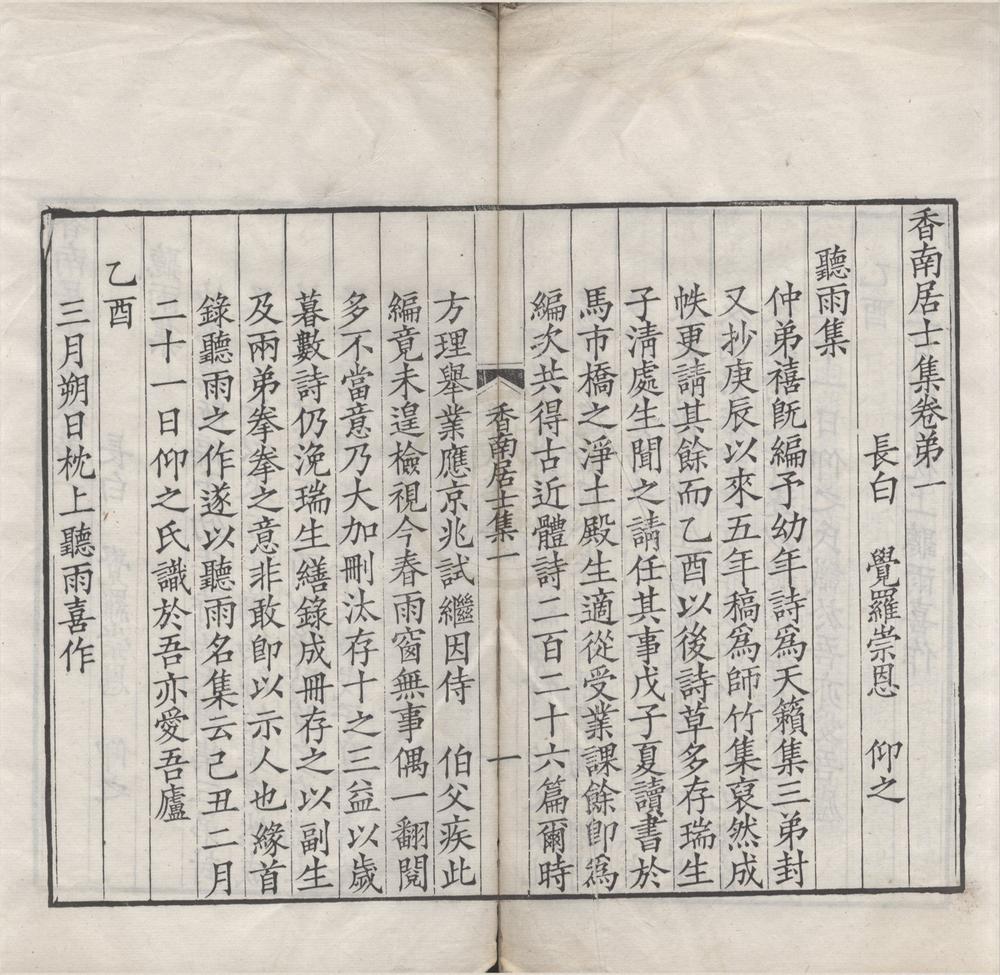 香南居士集卷弟一
長白 覺羅崇恩 仰之
聽雨集
仲弟禧旣編予幼年詩爲天籟集三弟封
又抄庚辰以來五年稿爲師竹集裒然成
帙更請其餘而乙酉以後詩草多存瑞生
子淸處生聞之請任其事戊子夏讀書於
馬市橋之淨土殿生適從受業課餘卽爲
編次共得古近體詩二百二十六篇爾時
香南居士集一
一
方理舉業應京兆試繼因侍 伯父疾此
編竟未遑檢視今春雨窗無事偶一翻閱
多不當意乃大加刪汰存十之三益以歲
暮數詩仍浼瑞生繕錄成冊存之以副生
及兩弟拳拳之意非敢卽以示人也緣首
錄聽雨之作遂以聽雨名集云己丑二月
二十一日仰之氏識於吾亦愛吾廬
乙酉
三月朔日枕上聽雨喜作